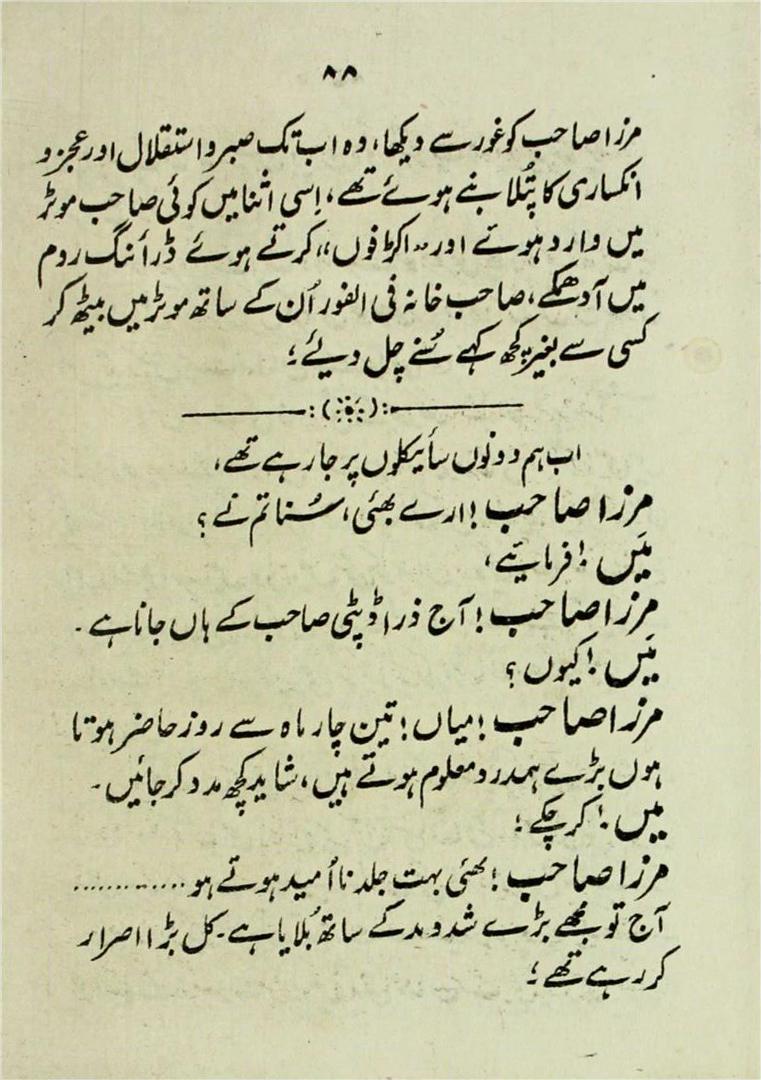 ۸۸
مرزا صاحب کو غور سے دیکھا، وہ اب تک صبر و استقلال اور عجز و
انکساری کا پُتلا بنے ہوئے تھے، اِسی اثنا میں کوئی صاحب موٹر
میں وارد ہوئے اور "اکڑفوں" کرتے ہوئے ڈرائنگ روم
میں آدھمکے، صاحب خانہ فی الفور اُن کے ساتھ موٹر میں بیٹھ کر
کسی سے بغیر کچھ کہے سُنے چل دیئے؛
اب ہم دونوں سائیکلوں پر جا رہے تھے،
مرزا صاحب! ارے بھئی، سُنا تم نے؟
مَیں! فرمایئے،
مرزا صاحب! آج ذرا ڈپٹی صاحب کے ہاں جانا ہے۔
مَیں! کیوں؟
مرزا صاحب! میاں! تین چار ماہ سے روز حاضر ہوتا
ہوں بڑے ہمدرد معلوم ہوتے ہیں، شاید کچھ مدد کر جائیں۔
میں! کر چکے؛
مرزا صاحب! بھئی بہت جلد نا اُمید ہوتے ہو ............
آج تو مجھے بڑے شد و مد کے ساتھ بُلایا ہے۔ کل بڑا اصرار
کر رہے تھے؛